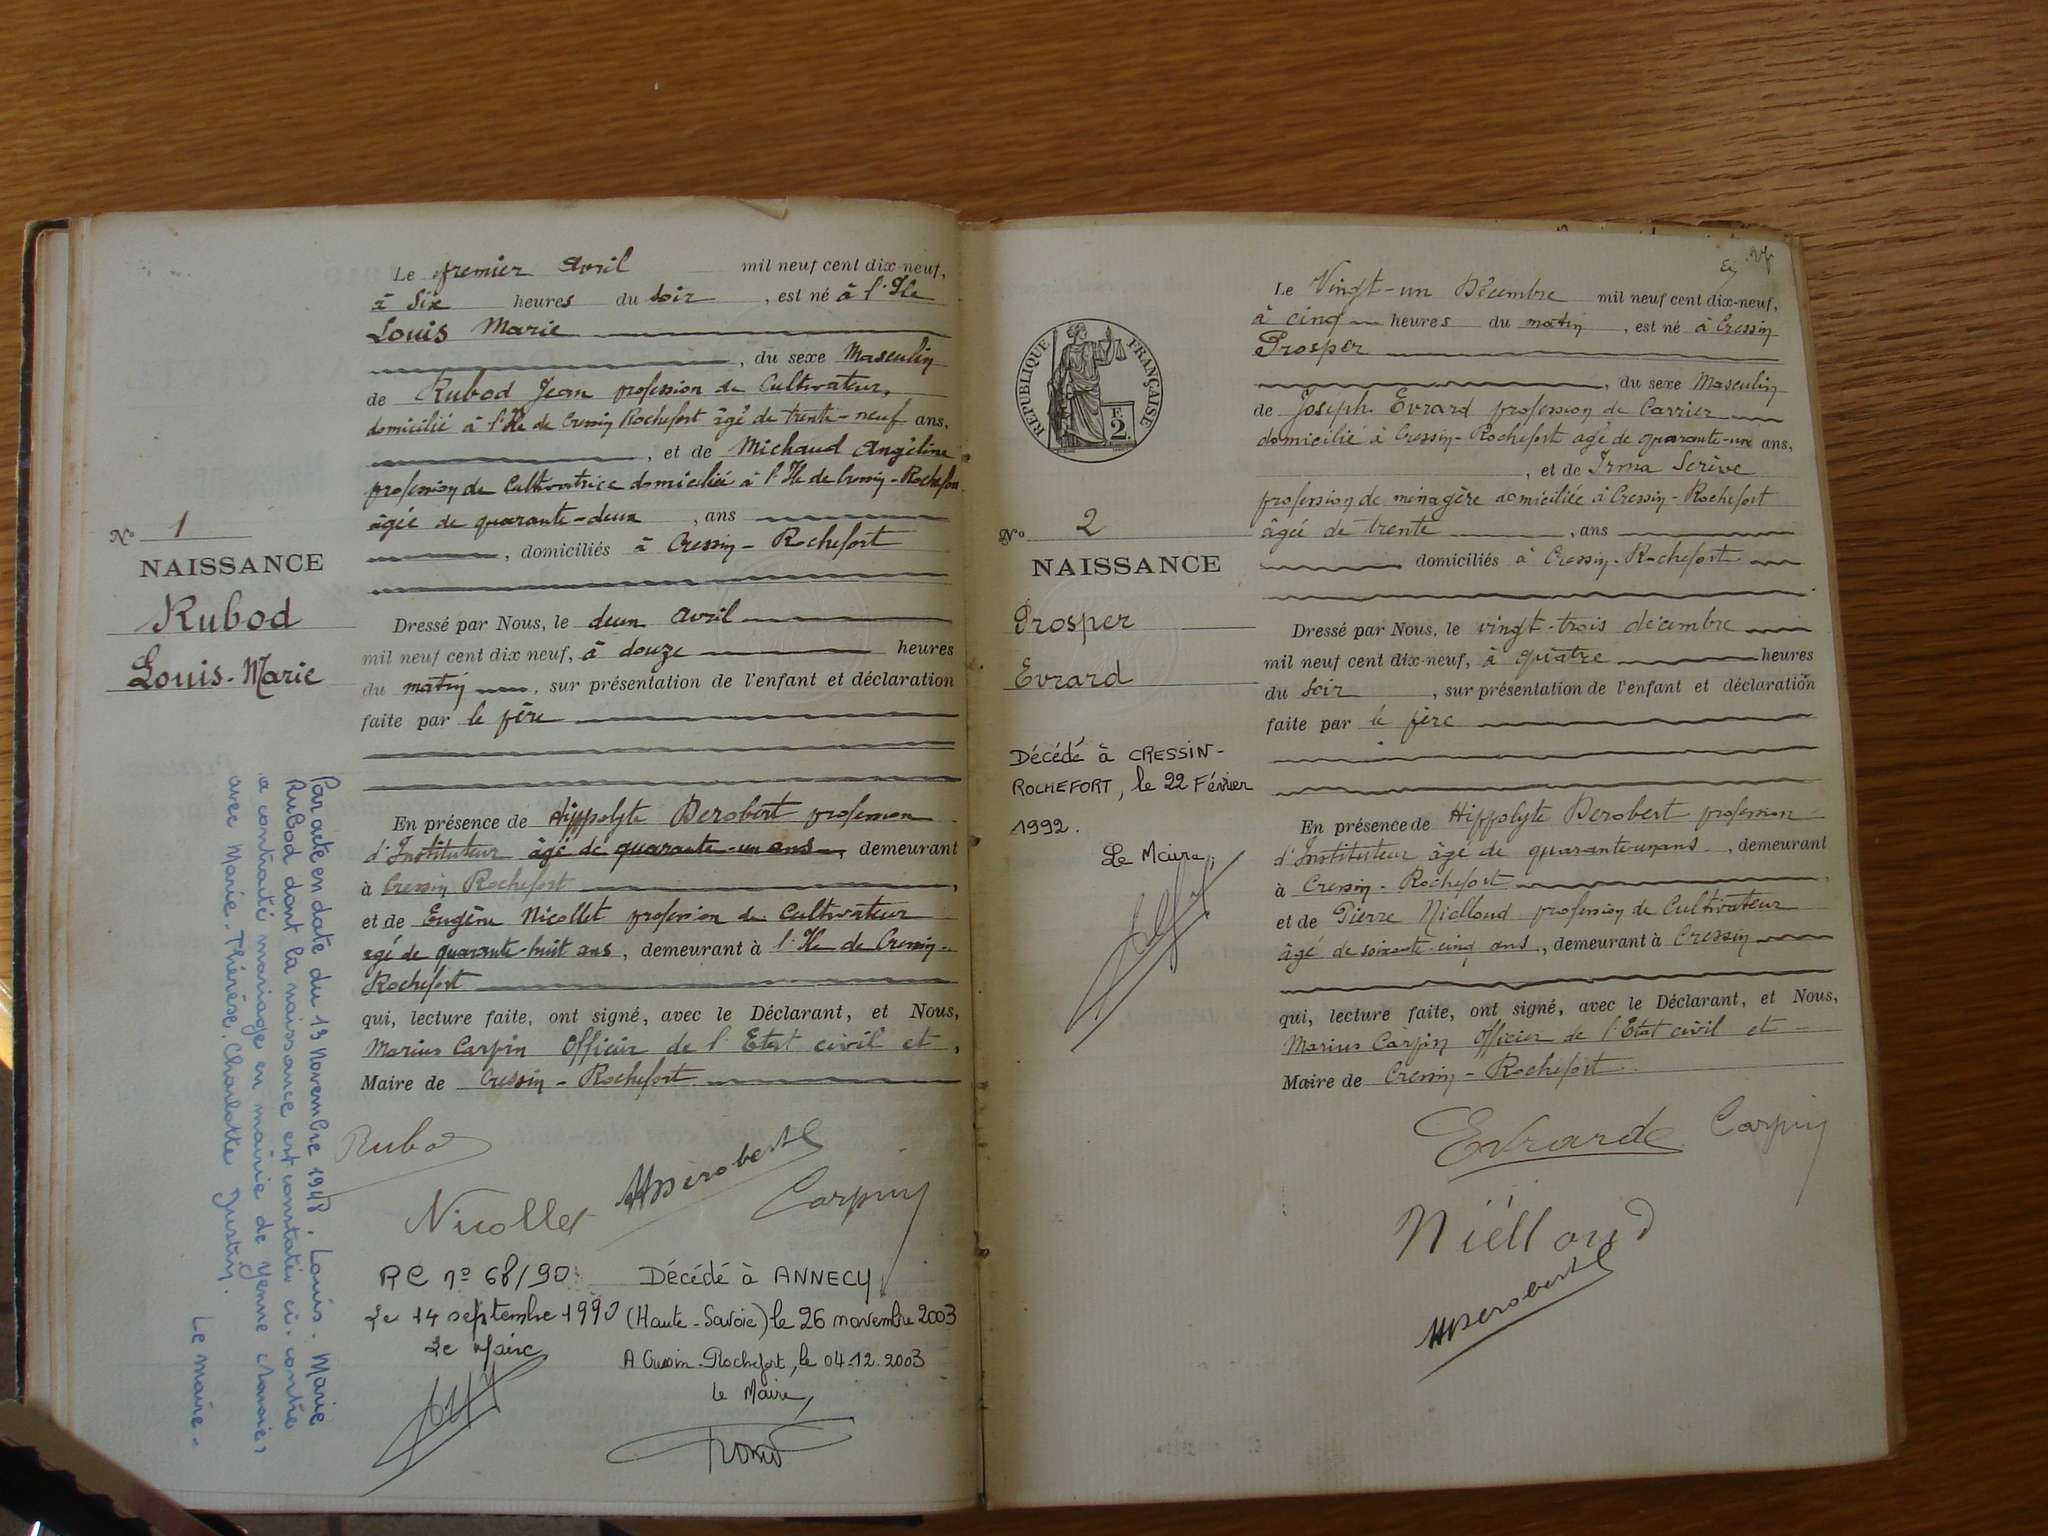 Le premier Avril mil neuf cent dix-neuf,
à Six heures du soir, est né à l'Ile
Louis Marie
, du sexe Masculin
de Rubod Jean profession de Cultivateur,
domicilié à l'Ile de Cressin Rochefort âgé de trente-neuf ans,
, et de Michaud Angéline
profession de Cultivatrice domiciliée à l'Ile de Cressin-Rochefort
âgée de quarante-deux, ans
, domiciliés à Cressin-Rochefort
Nº 1
NAISSANCE
Rubod
Louis-Marie
Dressé par Nous, le deux avril
mil neuf cent dix neuf, à douze heures
du matin, sur présentation de l'enfant et déclaration
faite par le père
En présence de Hippolyte Derobert profession
d'Instituteur âgé de quarante-un ans, demeurant
à Cressin Rochefort,
et de Eugène Nicollet profession de Cultivateur
agé de quarante-huit ans, demeurant à l'Ile de Cressin-
Rochefort
qui, lecture faite, ont signé, avec le Déclarant, et Nous,
Marius Carpin Officier de l'Etat civil et,
Maire de Cressin-Rochefort
Par acte en date du 13 Novembre 1948, Louis-Marie
Rubod dont la naissance est constatée ci-contre
a contracté mariage en mairie de Yenne (Savoie)
avec Marie-Thérèse, Charlotte Justin.
Le maire-
Rubod
HDerobert
Nicollet
Carpin
RC nº 68/90
Le 14 septembre 1990
Le Maire
Décédé à ANNECY
(Haute-Savoie) le 26 novembre 2003
A Cressin-Rochefort, le 04.12.2003
Le Maire,
RÉPUBLIQUE FRANÇAISE
F.
2.
Le Vingt-un Décembre mil neuf cent dix-neuf,
à cinq heures du matin, est né à Cressin
Prosper
, du sexe Masculin
de Joseph Evrard profession de Carrier
domicilié à Cressin-Rochefort agé de quarante-un ans,
, et de Irma Scrive
profession de ménagère domiciliée à Cressin-Rochefort
âgée de trente, ans
domiciliés à Cressin-Rochefort
Nº 2
NAISSANCE
Prosper
Evrard
Décédé à CRESSIN-
ROCHEFORT, le 22 Février
1992.
Le Maire,
Dressé par Nous, le vingt-trois décembre
mil neuf cent dix-neuf, à quatre heures
du Soir, sur présentation de l'enfant et déclaration
faite par le père
En présence de Hippolyte Derobert profession
d'Instituteur âgé de quarante-un ans, demeurant
à Cressin-Rochefort,
et de Pierre Niélloud profession de Cultivateur
âgé de soixante-cinq ans, demeurant à Cressin
qui, lecture faite, ont signé, avec le Déclarant, et Nous,
Marius Carpin Officier de l'Etat civil et
Maire de Cressin-Rochefort
Evrard Carpin
Niélloud
HDerobert